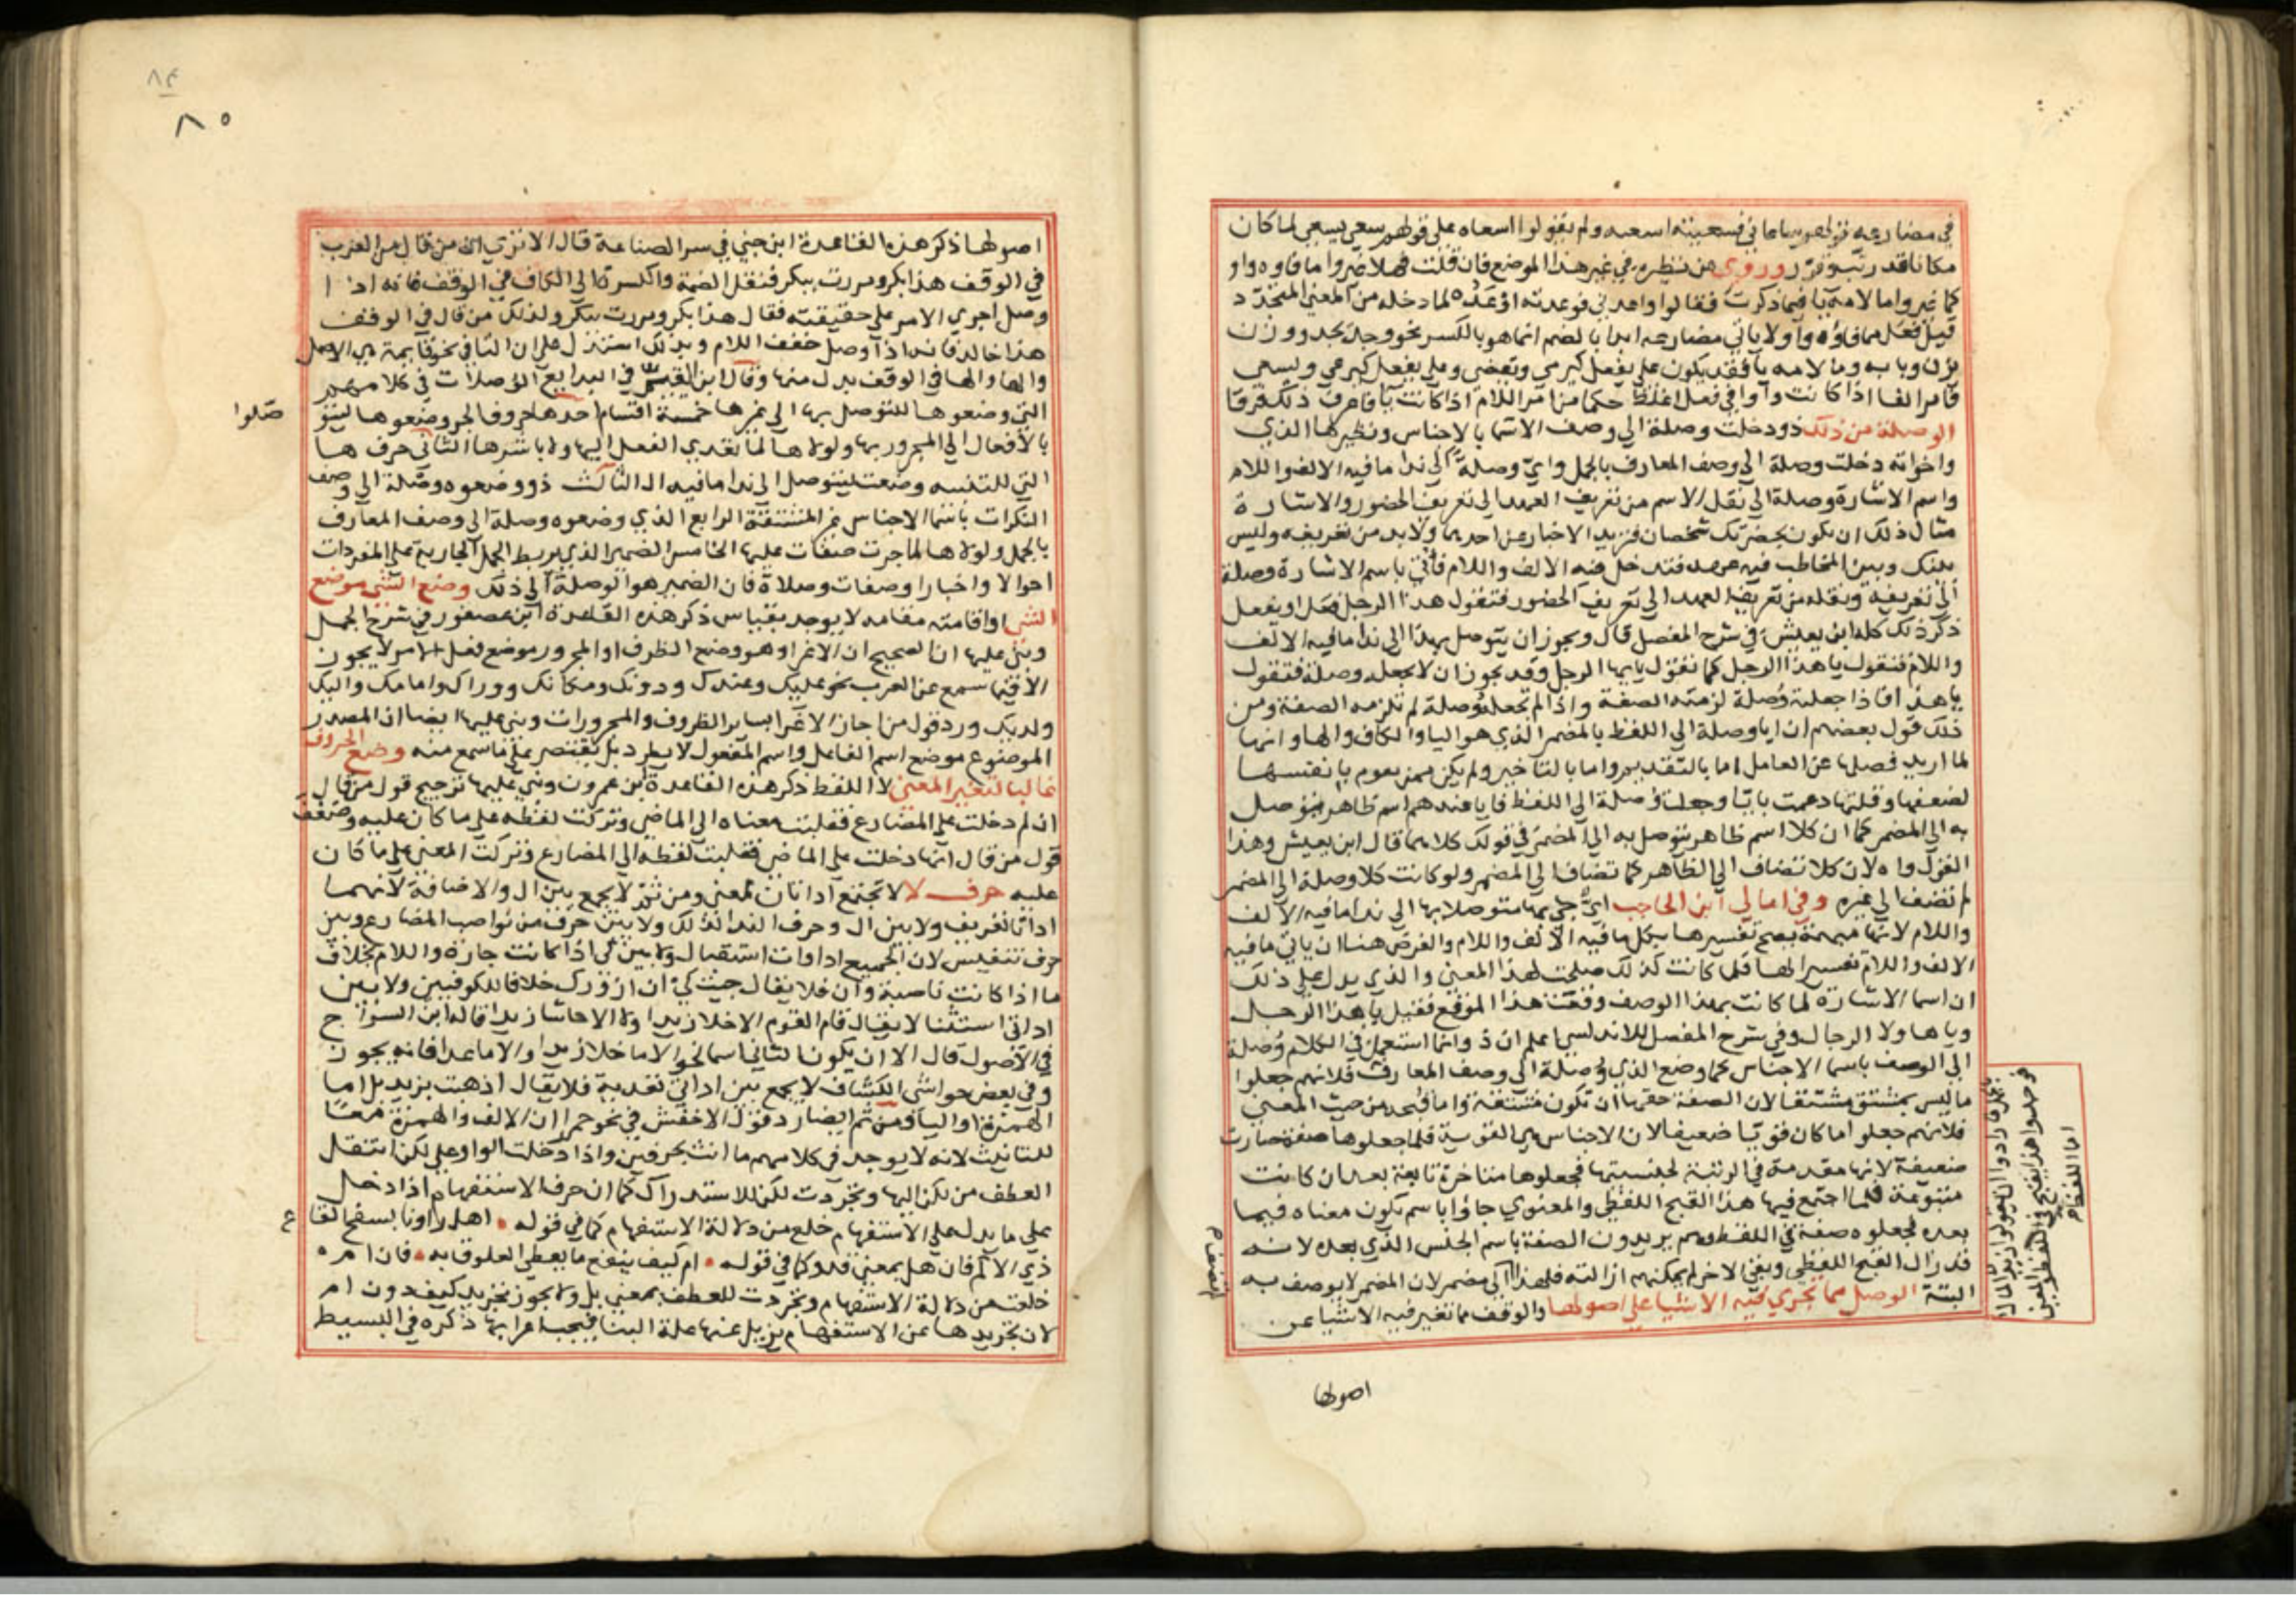 في مضارعه نحو لهم ساعاني فسعيته اسعيه ولم يقولوا اسعاه على قولهم سعى يسعى لما كان
مكانا قد رتب وقرر وروى عن نظيره في غير هذا الموضع فان قلت فهلا غيروا ما فاوه واو
كما غيروا ما لامه يا فيما ذكرت فقالوا واعدني فوعدته اوعده لما دخله من المعنى المتجدد
قيل فعل مما فاؤه واو لا ياتي مضارعه ابدا بالضم انما هو بالكسر نحو وجد يجد ووزن
يزن وبابه وما لامه يا فقد يكون على يفعل كيرمي ويقضي وعلى يفعل كيرعى ويسعى
فامر الفا اذا كانت واوا في فعل اغلظ حكما من امر اللام اذا كانت يا فاعرف ذلك فرقا
الوصلة من ذلك ذو دخلت وصلة الى وصف الاسما بالاجناس ونظيرها الذي
واخواته دخلت وصلة الى وصف المعارف بالجمل واي وصلة الى ندا ما فيه الالف واللام
واسم الاشارة وصلة الى نقل الاسم من تعريف العهد الى تعريف الحضور والاشارة
مثال ذلك ان يكون بحضرتك شخصان فتريد الاخبار عن احدهما ولا بد من تعريفه وليس
بينك وبين المخاطب فيه عهد فتدخل فيه الالف واللام فأتي باسم الاشارة وصلة
الى تعريفه ونقله من تعريف العهد الى تعريف الحضور فتقول هذا الرجل فعل او يفعل
ذكر ذلك كله ابن يعيش في شرح المفصل قال ويجوز ان يتوصل بهذا الى ندا ما فيه الالف
واللام فتقول يا هذا الرجل كما تقول يا ايها الرجل وقد يجوز ان لا يجعله وصلة فتقول
يا هذا فاذا جعلته وصلة لزمته الصفة واذا لم تجعله وصلة لم تلزمه الصفة ومن
ذلك قول بعضهم ان ايا وصلة الى اللفظ بالمضمر الذي هو اليا والكاف والها وانها
لما اريد فصلها عن العامل اما بالتقديم واما بالتاخير ولم يكن ممن يقوم بانفسها
لضعفها وقلتها دعمت بايا وجعلت وصلة الى اللفظ فايا عندهم اسم ظاهر يتوصل
به الى المضمر كما ان كلا اسم ظاهر يتوصل به الى المضمر في قولك كلاهما قال ابن يعيش وهذا
القول واه لان كلا تضاف الى الظاهر كما تضاف الى المضمر ولو كانت كلا وصلة الى المضمر
لم تضف الى غيره وفي امالي ابن الحاجب اي جي بها متوصلا بها الى ندا ما فيه الالف
واللام لانها مبهمة يصح تفسيرها بكل ما فيه الالف واللام والغرض هنا ان ياتي ما فيه
الالف واللام تفسيرا لها فلما كانت كذلك صلحت لهذا المعنى والذي يدل على ذلك
ان اسما الاشارة لما كانت بهذا الوصف وقعت هذا الموقع فقيل يا هذا الرجل
ويا هاولا الرجال وفي شرح المفصل للاندلسي اعلم ان ذو انما استعمل في الكلام وصلة
الى الوصف باسما الاجناس كما وضع الذي وصلة الى وصف المعارف فلانهم جعلوا
ما ليس بمشتق مشتقا لان الصفة حقها ان تكون مشتقة واما قبحه من حيث المعنى
فلانهم جعلوا ما كان قويا ضعيفا لان الاجناس هي القوية فلما جعلوها صفة صارت
ضعيفة لانها مقدمة في الرتبة لجنسيتها فجعلوها متاخرة تابعة بعد ان كانت
متبوعة فلما اجتمع فيها هذا القبح اللفظي والمعنوي جاؤا باسم يكون معناه فيما
بعده فجعلوه صفة في اللفظ وهم يريدون الصفة باسم الجنس الذي بعده لانه
قد زال القبح اللفظي وبقي الاخر لم يمكنهم ازالته فلهذا الى مضمر لان المضمر لا يوصف به
البتة الوصل مما تجري فيه الاشيا على اصولها والوقف مما تغير فيه الاشيا عن
اما اللفظ
اصولها
٨٤
٨٥
اصولها ذكر هذه القاعدة ابن جني في سر الصناعة قال الا تزي ان من قال من العرب
في الوقف هذا بكر ومررت ببكر فنقل الضمة والكسرة الى الكاف في الوقف فانه اذا
وصل اجرى الامر على حقيقته فقال هذا بكر ومررت ببكر ولذلك من قال في الوقف
هذا خالد فانه اذا وصل خفف اللام وبذلك استدل على ان التا في نحو قايمة هي الاصل
والها والها في الوقف بدل منها وقال ابن القيم في البدايع الوصلات في كلامهم
التي وضعوها للتوصل بها الى غيرها خمسة اقسام احدها حروف الجر وضعوها ليتو
صلوا
بالافعال الى المجرور بها ولولاها لما تعدى الفعل اليها ولا باشرها الثاني حرف ها
التي للتنبيه وضعت ليتوصل الى ندا ما فيه ال الثالث ذو وضعوه وصلة الى وصف
النكرات باسما الاجناس غير المشتقة الرابع الذي وضعوه وصلة الى وصف المعارف
بالجمل ولولاها لما جرت صفات عليها الخامس الضمير الذي يربط الجمل الجارية على المفردات
احوالا واخبارا وصفات وصلاة فان الضمير هو الوصلة الى ذلك وضع الشي موضع
الشي او اقامته مقامه لا يوجد بقياس ذكر هذه القاعدة ابن عصفور في شرح الجمل
وبنى عليها ان الصحيح ان الاغرا وهو وضع الظرف او المجرور موضع فعل الامر لا يجوز
الا فيما سمع عن العرب نحو عليك وعندك ودونك ومكانك ووراك وامامك واليك
ولديك ورد قول من اجاز الاغرا بساير الظروف والمجرورات وبنى عليها ايضا ان المصدر
الموضوع موضع اسم الفاعل واسم المفعول لا يطرد بل يقتصر على ما سمع منه وضع الحروف
غالبا لتغيير المعنى لا اللفظ ذكر هذه القاعدة ابن عمرون وبنى عليها ترجيح قول من قال
ان لم دخلت على المضارع فقلبت معناه الى الماضي وتركت لفظه على ما كان عليه وضعف
قول من قال انها دخلت على الماضي فقلبت لفظه الى المضارع وتركت المعنى على ما كان
عليه حرف لا لا تجتمع اداتان لمعنى ومن ثم لا يجمع بين ال والاضافة لانهما
اداتا تعريف ولا بين ال وحرف الندا لذلك ولا بين حرف من نواصب المضارع وبين
حرف تنفيس لان الجميع ادوات استقبال ولا بين كي اذا كانت جازة واللام بخلاف
ما اذا كانت ناصبة وان فلا يقال جيت كي ان ازورك خلافا للكوفيين ولا بين
اداتي استثنا لا يقال قام القوم الا خلا زيدا ولا الا حاشا زيدا قاله ابن السراج
في الاصول قال الا ان يكون الثاني اسما نحو الا ما خلا زيدا والا ما عدا فانه يجوز
وفي بعض حواشي الكشاف لا يجمع بين اداتي تعدية فلا يقال اذهبت بزيد بل اما
الهمزة او اليا ومن ثم ايضا رد قول الاخفش في نحو حمرا ان الالف والهمزة معا
للتانيث لانه لا يوجد في كلامهم ما انث بحرفين واذا دخلت الواو على لكن انتقل
العطف من لكن اليها وتجردت لكن للاستدراك كما ان حرف الاستفهام اذا دخل
على ما يدل على الاستفهام خلع من دلالة الاستفهام كما في قوله اهل راونا بسفح القا
ع
ذي الاكم فان هل بمعنى قد وكما في قوله ام كيف ينفع ما يعطي العلوق به فان ام
خلعت من دلالة الاستفهام وتجردت للعطف بمعنى بل ولا يجوز تجريد كيف دون ام
لان تجريدها عن الاستفهام يزيل عنها علة البنا فيجب اعرابها ذكره في البسيط